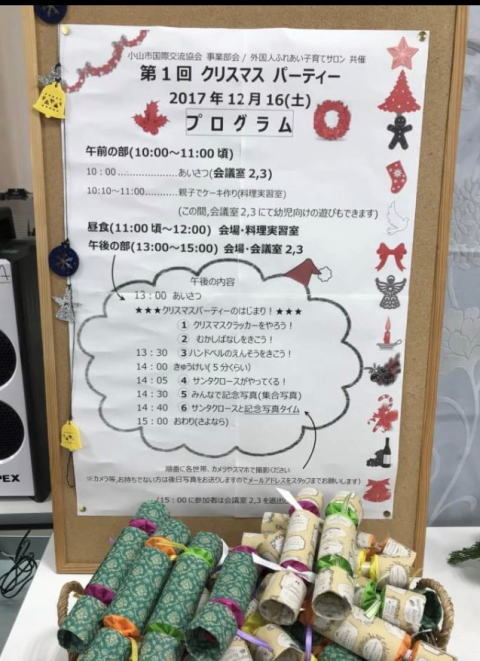 小山市国際交流協会 事業部会/ 外国人ふれあい子育てサロン 共催
第1回 クリスマス パーティー
2017年12月16(土)
プログラム
午前の部(10:00～11:00頃)
10:00………………あいさつ(会議室2,3)
10:10～11:00…………親子でケーキ作り(料理実習室)
(この間,会議室2,3にて幼児向けの遊びもできます)
昼食(11:00頃～12:00) 会場・料理実習室
午後の部(13:00～15:00) 会場・会議室2,3
午後の内容
13:00 あいさつ
★★★クリスマスパーティーのはじまり!★★★
1 クリスマスクラッカーをやろう!
2 むかしばなしをきこう!
13:30 3 ハンドベルのえんそうをきこう!
14:00 きゅうけい(5分くらい)
14:05 4 サンタクロースがやってくる!
14:30 5 みんなで記念写真(集合写真)
14:40 6 サンタクロースと記念写真タイム
15:00 おわり(さよなら)
順番に各世帯、カメラやスマホで撮影ください
※カメラ等,お持ちでない方は後日写真をお送りしますのでメールアドレスをスタッフまでお願いします)
(15:00に参加者は会議室2,3を退出
PEX